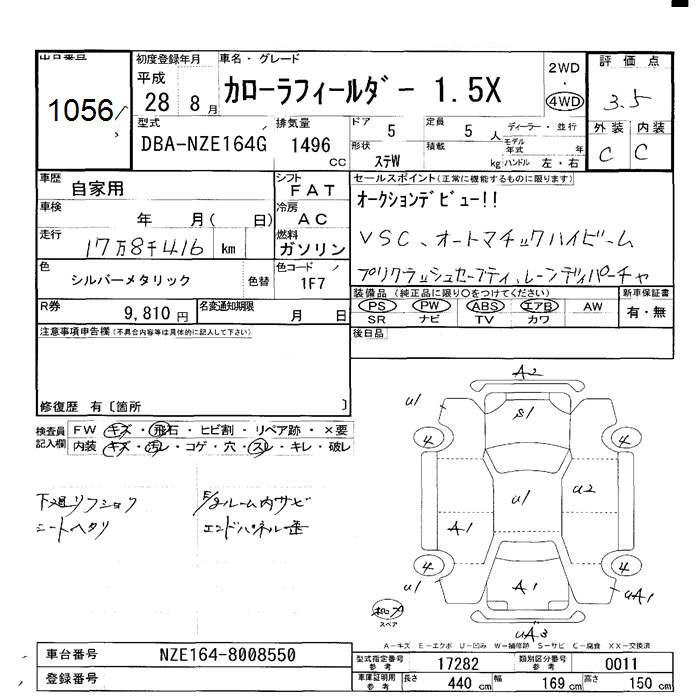 出品番号
1056
初度登録年月
平成
28年 8月
車名・グレード
カローラフィールダー 1.5X
2WD
・
4WD
評価点
3.5
外装 内装
C C
型式
DBA-NZE164G
排気量
1496
CC
ドア 5
定員 5 人
ディーラー・並行
形状 ステW
積載 kg
モデル年式 年
ハンドル 左・右
車歴
自家用
シフト
FAT
車検
年 月( 日)
冷房
AC
走行
17万8千416 km
燃料
ガソリン
色
シルバーメタリック
色替
色コード
1F7
R券
9,810円
名変通知期限
月 日
セールスポイント(正常に機能するものに限ります)
オークションデビュー!!
VSC、オートマチックハイビーム
プリクラッシュセーフティ、レーンディパーチャ
装備品(純正品に限り○をつけてください)
PS PW ABS エアB AW
SR ナビ TV カワ
新車保証書
有・無
後日品
注意事項申告欄(不具合内容等は具体的に記入して下さい)
修復歴 有〔箇所 〕
検査員記入欄
FW キズ・飛石・ヒビ割・リペア跡・×要
内装 キズ・汚レ・コゲ・穴・スレ・キレ・破レ
下廻リフショク
シートヘタリ
E/gルーム内サビ
エンドパネル歪
A2
U1
S1
4
4
U1
U2
A1
4
4
U1
A1
UA1
スペア
UA3
A-キズ E-エクボ U-凹み W-補修跡 S-サビ C-腐食 XX-交換済
車台番号 NZE164-8008550
登録番号
型式指定番号 参考 17282
類別区分番号 参考 0011
車庫証明用 参考 長さ 440 cm 幅 169 cm 高さ 150 cm